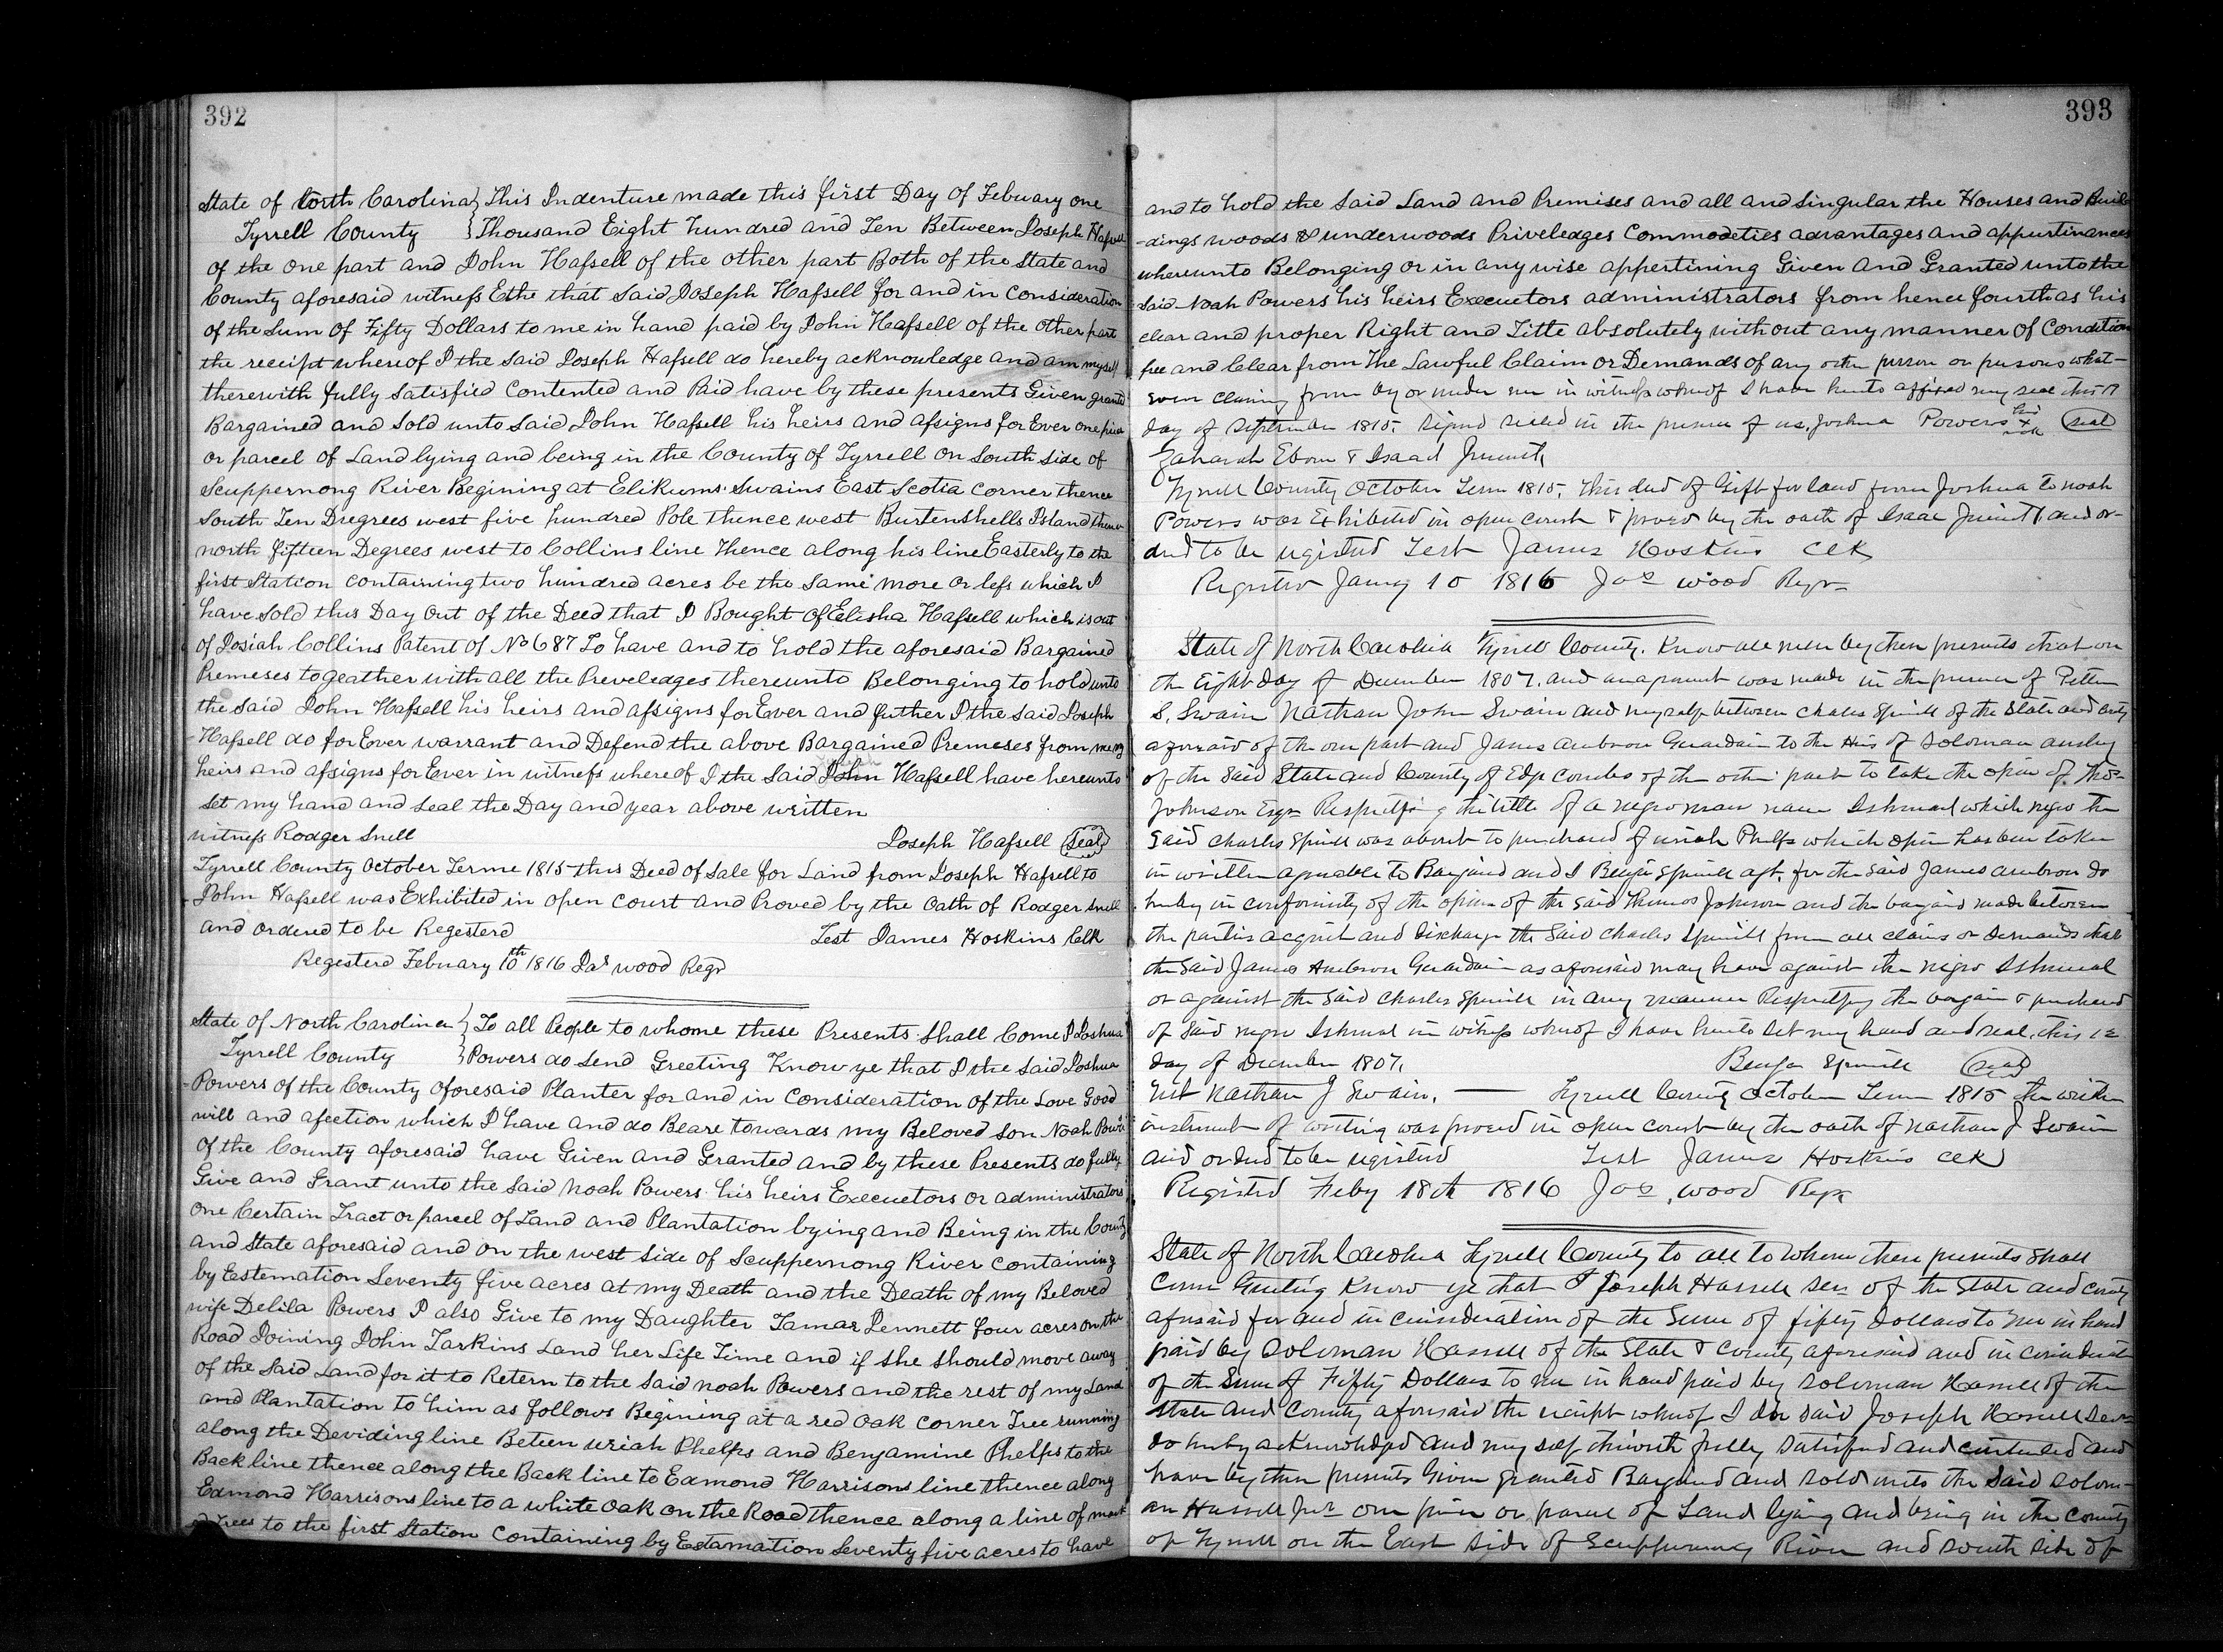 392
State of North Carolina } This Indenture made this first Day of Febuary one
Tyrrell County } Thousand Eight hundred and Ten Between Joseph Hassell
of the one part and John Hassell of the other part Both of the State and
County aforesaid witness Ethe that said Joseph Hassell for and in consideration
of the Sum of Fifty Dollars to me in hand paid by John Hassell of the other part
the receipt whereof I the said Joseph Hassell do hereby acknowledge and am myself
therewith fully satisfied contented and Paid have by these presents Given granted
Bargained and Sold unto said John Hassell his heirs and assigns for Ever one piece
or parcel of Land lying and being in the County of Tyrrell on South side of
Scuppernong River Begining at Elikums Swains East Scotia corner thence
South Ten Dregrees west five hundred Pole thence west Burtenshells Island thence
north fifteen Degrees west to Collins line Thence along his line Easterly to the
first Station containing two hundred acres be the same more or less which I
have sold this Day out of the Deed that I Bought of Elisha Hassell which is out
of Josiah Collins Patent of No 687 To have and to hold the aforesaid Bargained
Premeses togeather with all the Preveledges thereunto Belonging to hold unto
the said John Hassell his heirs and assigns for Ever and futher I the said Joseph
Hassell do for Ever warrant and Defend the above Bargained Premeses from me my
heirs and assigns for Ever in witness whereof I the said John Hassell have hereunto
set my hand and seal the Day and year above written
witness Rodger Snell Joseph Hassell (Seal)
Tyrrell County October Terme 1815 this Deed of Sale for Land from Joseph Hassell to
John Hassell was Exhibited in open court and Proved by the Oath of Rodger Snell
and ordered to be Regesterd Test James Hoskins Clk
Regesterd Febuary 10th 1816 Jas wood Regr
State of North Carolina } To all People to whome these Presents Shall Come I Joshua
Tyrrell County } Powers do send Greeting Know ye that I the said Joshua
Powers of the County aforesaid Planter for and in Consideration of the Love Good
will and afection which I have and do Beare towards my Beloved Son Noah Powers
of the County aforesaid have Given and Granted and by these Presents do fully
Give and Grant unto the said Noah Powers his heirs Execuetors or administrators
one Certain Tract or parcel of Land and Plantation bying and Being in the County
and State aforesaid and on the west side of Scuppernong River containing
by Estemation Seventy five acres at my Death and the Death of my Beloved
wife Delila Powers I also Give to my Daughter Tamar Jennett four acres on the
Road Joining John Tarkins Land her Life Time and if she should move away
of the said Land for it to Retern to the said noah Powers and the rest of my Land
and Plantation to him as follows Begining at a red oak corner Tree running
along the Deviding line Beteen uriah Phelps and Benjamine Phelps to the
Back line thence along the Back line to Edmond Harrisons line thence along
Edmond Harrisons line to a white oak on the Road thence along a line of mark
ed Trees to the first Station Containing by Estamation Seventy five acres to have
393
and to hold the said Land and Premises and all and Singular the Houses and Buil
-dings woods & underwoods Priveledges Commodeties advantages and appurtinances
whereunto Belonging or in any wise appertining Given and Granted unto the
said Noah Powers his heirs Execuetors administrators from hence fourth as his
clear and proper Right and Title absolutely without any manner of Condition
free and Clear from The Lawful Claim or Demands of any other person or persons what-
soever claiming from by or under me in witness whereof I have hereto affixed my seal this 17
day of September 1815. Signed sealed in the presence of us. Joshua Powers his X mark (seal)
Zahariah Eborn & Isaac Jennett
Tyrrell County October Term 1815. This deed of Gift for land from Joshua to noah
Powers was Exhibited in open court & proved by the oath of Isaac Jennett and or-
dered to be registered Test James Hoskins Clk
Register Jany 10 1816 Jas wood Regr
State of North Carolina Tyrrell County. Know all men by these presents that on
the Eight day of December 1807. and an agreement was made in the presence of Pettin
S. Swain Nathan John Swain and myself between Charles Spruill of the State and County
aforesaid of the one part and James Ambrose Guardain to the Heirs of Soloman Ansley
of the said State and County of the other part to take the opinion of Thos
Johnson Esqr Respecting the title of a negro man name Ishmael which negro the
said Charles Spruill was about to purchased of uriah Phelps which opinion has been taken
in written agreeable to Bargaind and I Benja Spruill agt. for the said James ambrose do
hereby in conformity of the opinion of the said Thomas Johnson and the bargaind made between
the parties acquit and Discharge the said Charles Spruill from all claims or Demands that
the said James Ambrose Guardain as aforesaid may have against the negro Ishmeal
or against the said Charles Spruill in any manner Respecting the bargain & purchased
of said negro Ishmeal in witness whereof I have hereto set my hand and seal. this 12
day of December 1807. Benja Spruill (seal)
Test Nathan J Swain. — Tyrrell County October Term 1815 the written
instrument of writing was proved in open court by the oath of Nathan J Swain
and ordered to be registered Test James Hoskins Clk
Registed Feby 18th 1816 Jas. wood Regr
State of North Carolina Tyrrell County to all to whom these presents shall
Come Greeting Know ye that I Joseph Hassell Sen of the State and county
aforesaid for and in consideration of the Sum of fifty Dollars to me in hand
paid by Soloman Hassell of the State & County aforesaid and in considerati
of the Sum of Fifty Dollars to me in hand paid by Soloman Hassell of the
State and County aforesaid the receipt whereof I the said Joseph Hassell Senr
do hereby acknowledged and my self therewith fully satisfied and contented and
have by these presents Given granted Bargained and sold unto the said Solom-
an Hassell Jnr one piece or parcel of Land lying and being in the County
of Tyrrell on the East side of Scuppernong River and south side of